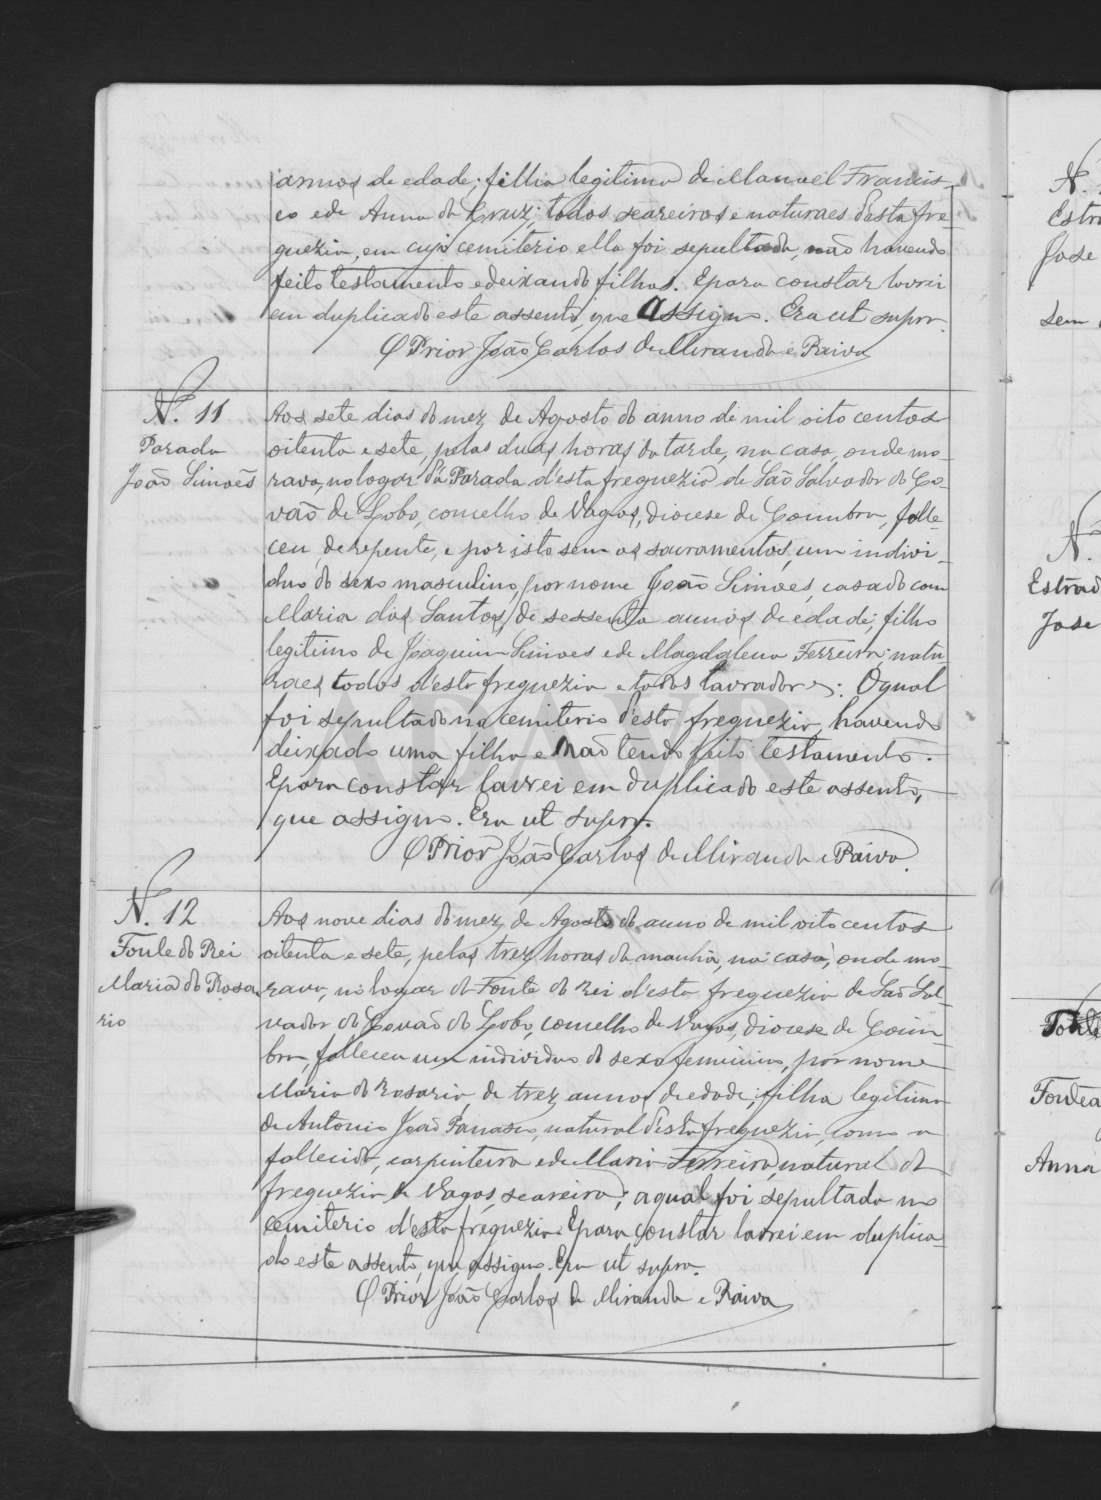 annos de edade; filha legitima de Manoel Francis-
co e de Anna da Cruz; todos seareiros e naturaes d'esta fre-
guezia, em cujo cemiterio ella foi sepultada, não havendo
feito testamento e deixando filhos. E para constar lavrei
em duplicado este assento, que assigno. Era ut supra.
O Prior João Carlos de Miranda e Paiva
N. 11
Parada
João Simoẽs
Aos sete dias do mez de Agosto do anno de mil oito centos
oitenta e sete, pelas duas horas da tarde, na casa, onde mo-
rava, no logar da Parada d'esta freguezia de São Salvador do Co-
vão do Lobo, concelho de Vagos, diocese de Coimbra, falle-
ceu, de repente, e por isto sem os sacramentos, um indivi-
duo do sexo masculino, por nome João Simoes, casado com
Maria dos Santos, de sessenta annos de edade; filho
legitimo de Joaquim Simoes e de Magdalena Ferreira; natu-
raes todos d'esta freguezia e todos lavradores. O qual
foi sepultado no cemiterio d'esta freguezia, havendo
deixado uma filha e não tendo feito testamento.
E para constar lavrei em duplicado este assento,
que assigno. Era ut supra.
O Prior João Carlos de Miranda e Paiva.
N. 12
Fonte do Rei
Maria do Rosa-
rio
Aos nove dias do mez de Agosto do anno de mil oito centos
oitenta e sete, pelas trez horas da manhã, na casa, onde mo-
rava, no logar da Fonte do Rei d'esta freguezia de São Sal-
vador do Covão do Lobo, concelho de Vagos, diocese de Coim-
bra, falleceu um individuo do sexo feminino, por nome
Maria do Rosario, de trez annos de edade; filha legitima
de Antonio João, natural d'esta freguezia, como a
fallecida, carpinteiro e de Maria Ferreira, natural da
freguezia de Vagos, seareira; a qual foi sepultada no
cemiterio d'esta freguezia. E para constar lavrei em duplica-
do este assento, que assigno. Era ut supra.
O Prior João Carlos de Miranda e Paiva
N.
Estra
Jose
sem
N.
Estrad
Jose
Fonte
Anna